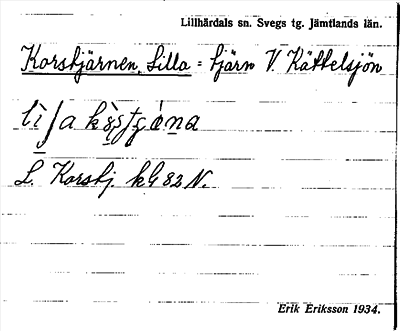 Lillhärdals sn. Svegs tg. Jämtlands län.
Korstjärnen, Lilla = tjärn V. Kättelsjön
L. Korstj. kG 82 N.
Erik Eriksson 1934.